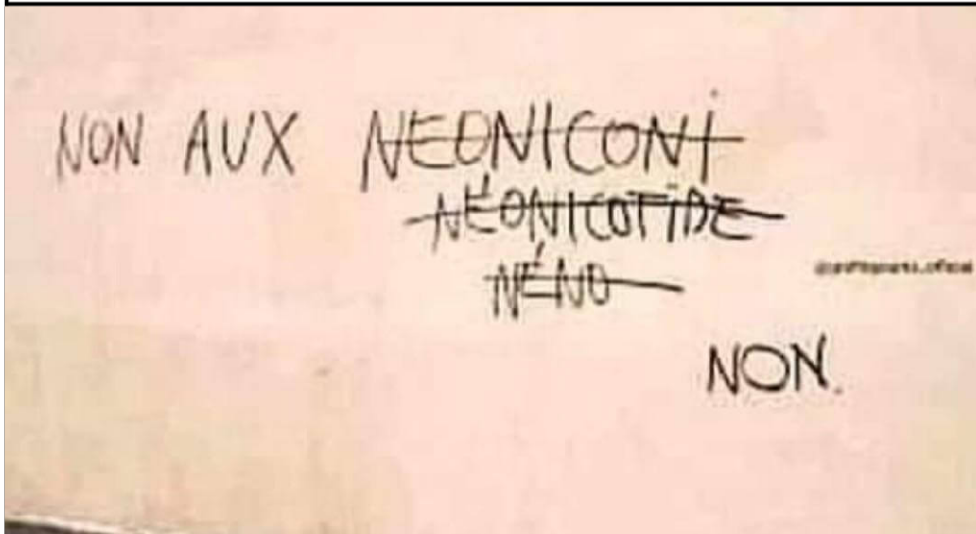 NON AUX NEONICONI
NÉONICOTIDE
NÉNO
NON.